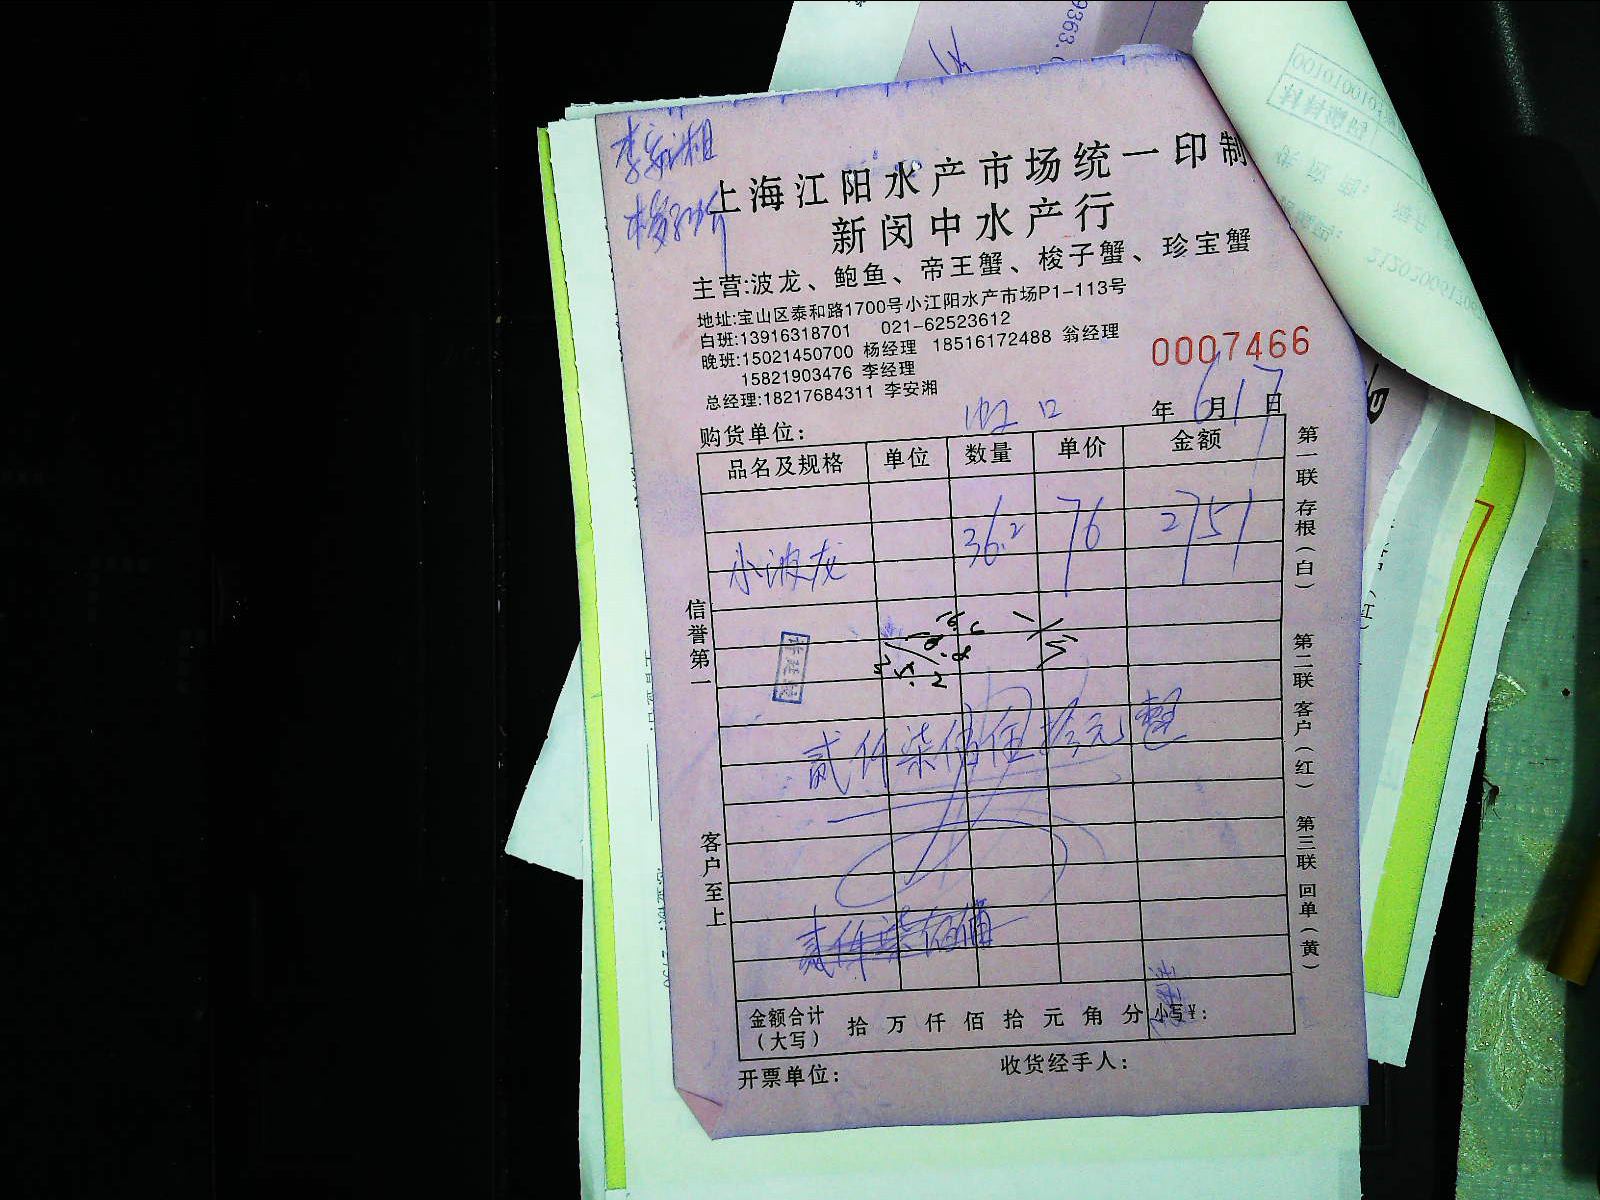 李安湘
上海江阳水产市场统一印制
新闵中水产行
主营:波龙、鲍鱼、帝王蟹、梭子蟹、珍宝蟹
地址:宝山区泰和路1700号小江阳水产市场P1-113号
白班:13916318701 021-62523612
晚班:15021450700 杨经理 18516172488 翁经理
15821903476 李经理
总经理:18217684311 李安湘
0007466
年 6月17日
购货单位: 虹口
品名及规格 单位 数量 单价 金额
小波龙 36.2 76 2751
贰仟柒佰伍拾元整
贰仟柒佰
金额合计(大写) 拾万仟佰拾元角分 小写¥:
开票单位: 收货经手人:
信誉第一
客户至上
第一联 存根(白)
第二联 客户(红)
第三联 回单(黄)